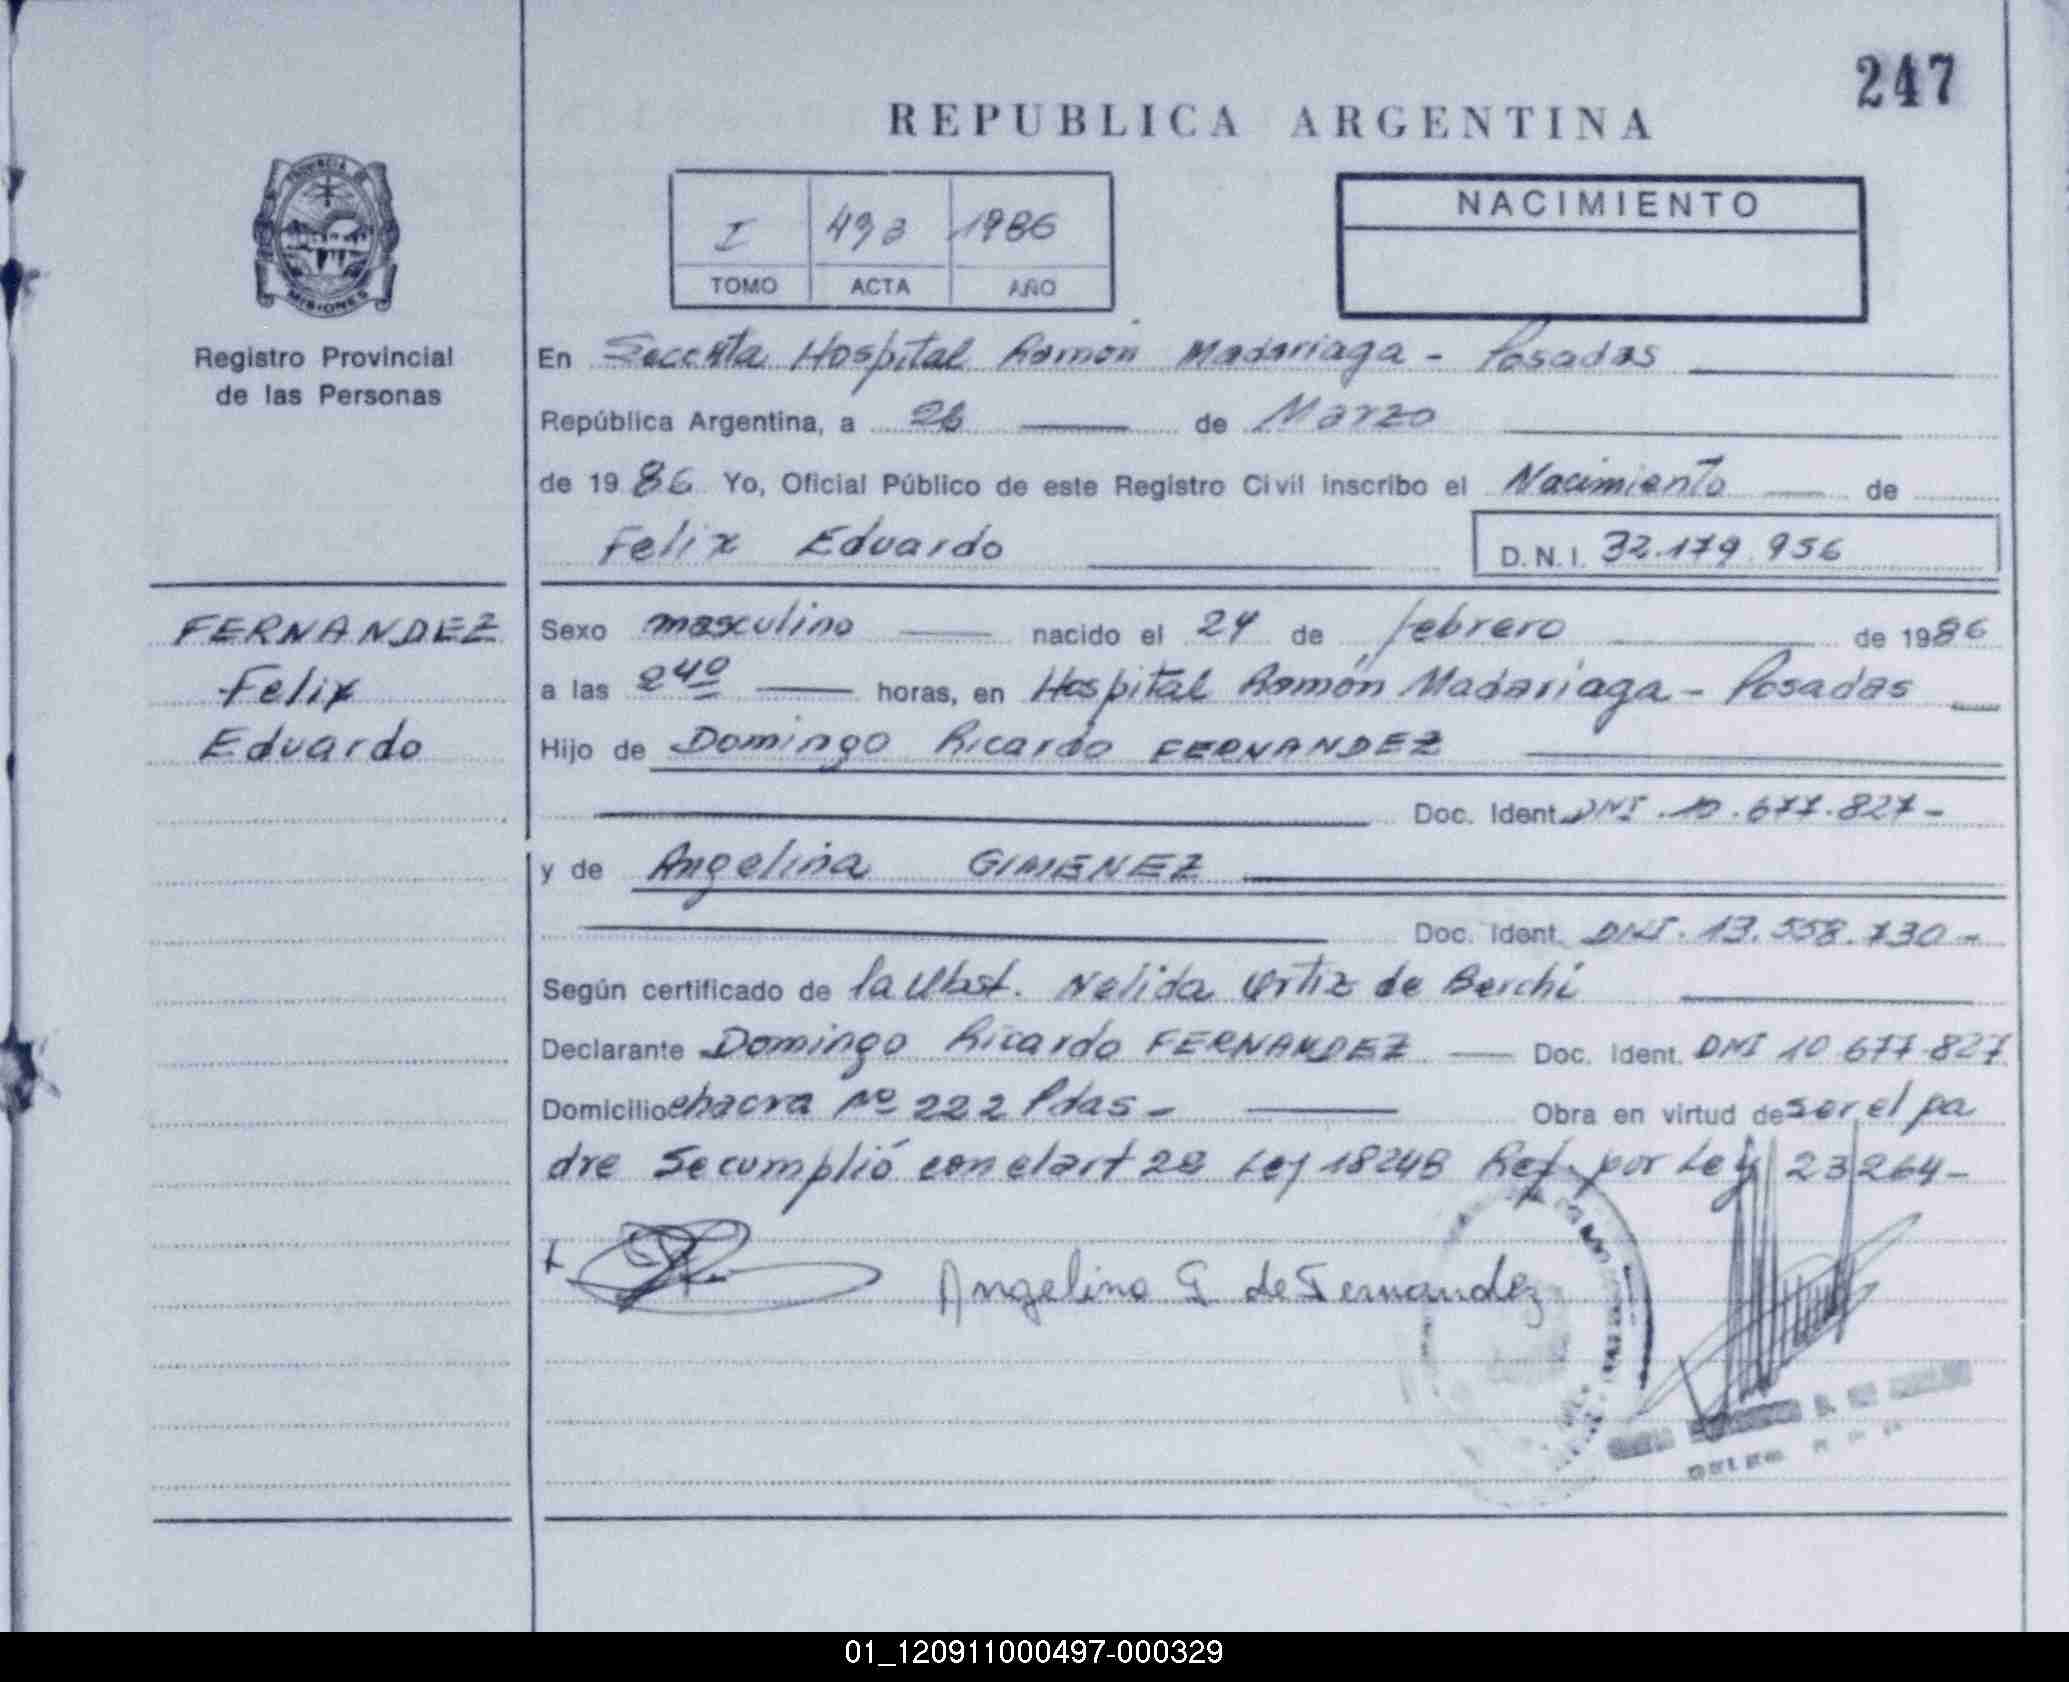 247
REPUBLICA ARGENTINA
PROVINCIA DE
MISIONES
I 493 1986
TOMO ACTA AÑO
NACIMIENTO
Registro Provincial
de las Personas
En Hospital Ramón Madariaga - Posadas
República Argentina, a 26 de Marzo
de 1986 Yo, Oficial Público de este Registro Civil inscribo el Nacimiento de
Felix Eduardo D.N.I. 32.179.956
FERNANDEZ
Felix
Eduardo
Sexo masculino nacido el 24 de febrero de 1986
a las 24º horas, en Hospital Ramón Madariaga - Posadas
Hijo de Domingo Ricardo FERNANDEZ
Doc. Ident. DNI. 10.677.827-
y de Angelina GIMENEZ
Doc. Ident. DNI. 13.558.730-
Según certificado de la Obst. Nelida Ortiz de Berchi
Declarante Domingo Ricardo FERNANDEZ Doc. Ident. DNI 10 677 827
Domicilio chacra Nº 222 Pdas- Obra en virtud de ser el pa
dre Se cumplió con el art 2º Ley 18248 Ref. por Ley 23264-
Angelina G de Fernandez
01_120911000497-000329